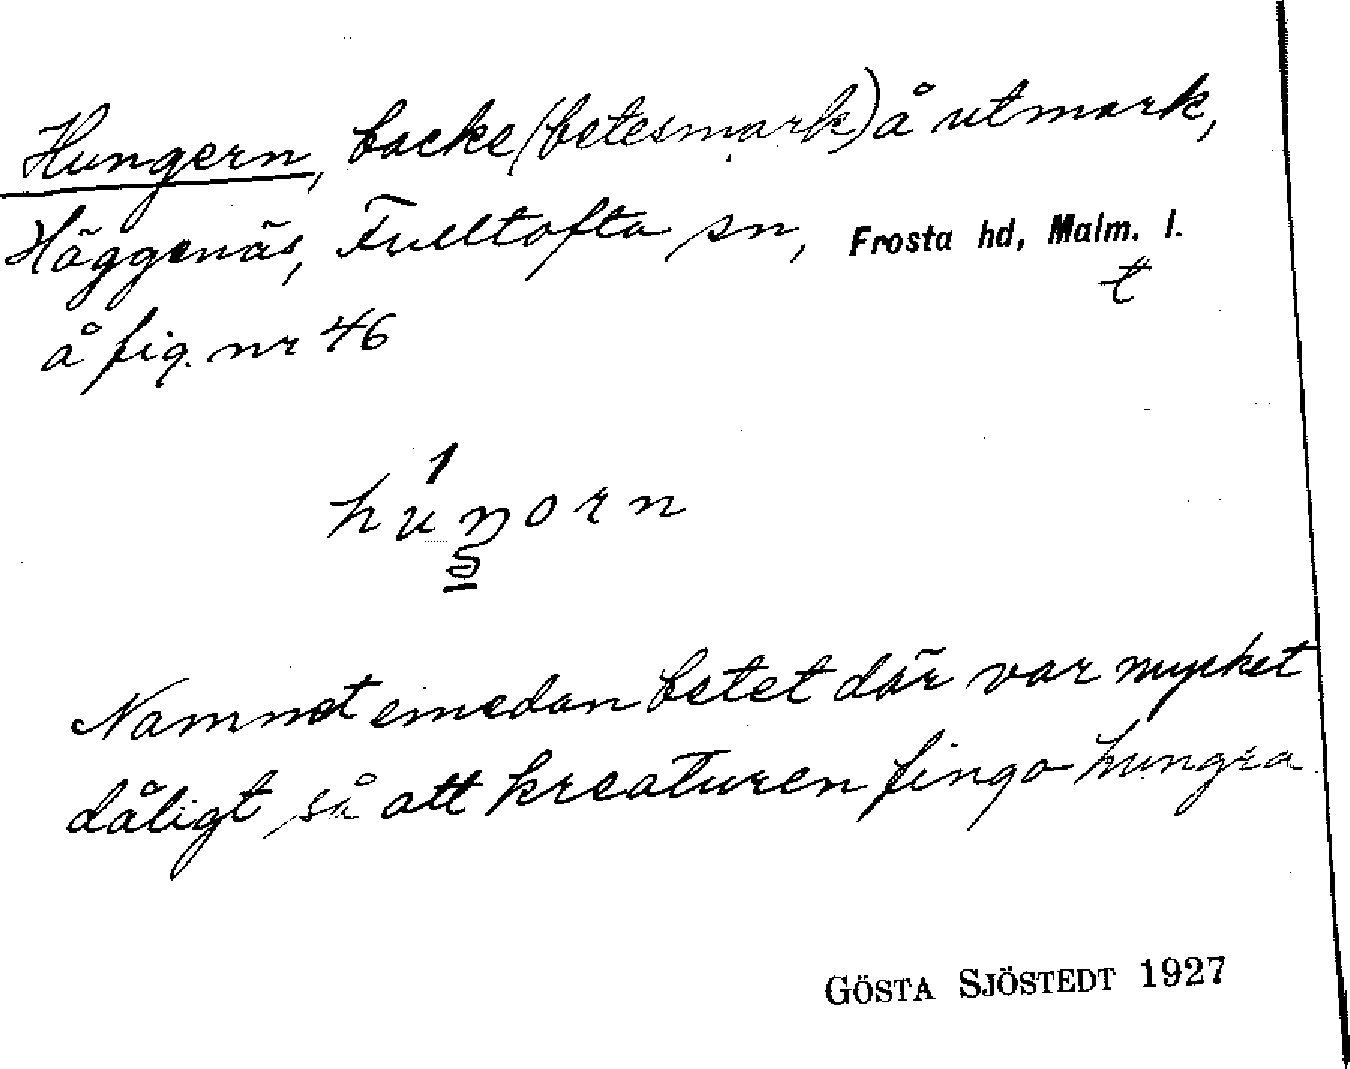 Hungern, backe (betesmark) å utmark,
Häggenäs, Fulltofta sn, Frosta hd, Malm. l.
t
å fig. nr 46
huŋorn
Namnet emedan betet där var mycket
dåligt, så att kreaturen fingo hungra
GÖSTA SJÖSTEDT 1927